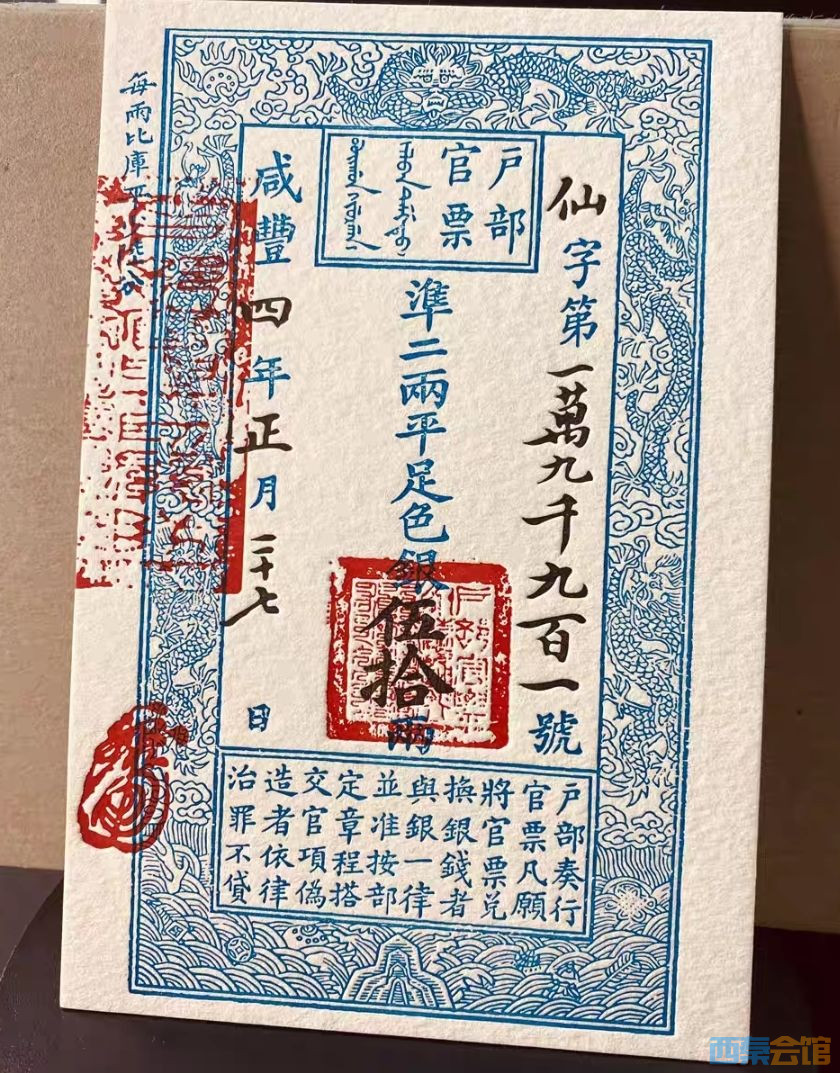 户部
官票
仙字第一萬九千九百一號
準二兩平足色銀伍拾兩
咸豐四年正月二十七日
户部奏行
官票凡願
將官票兌
換銀錢者
與銀一律
並准按部
定章程搭
交官項偽
造者依律
治罪不貸
每兩比庫平
西秦会馆